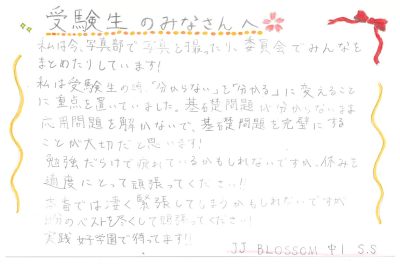 受験生のみなさんへ
私は今、写真部で写真を撮ったり、委員会でみんなを
まとめたりしています！
私は受験生の時、「分からない」を「分かる」に変えること
に重点を置いていました。基礎問題が分からないまま
応用問題を解かないで、基礎問題を完璧にする
ことが大切だと思います！
勉強だらけで疲れているかもしれないですが、休みを
適度にとって頑張ってください！
本番では凄く緊張してしまうかもしれないですが
自分のベストを尽くして頑張ってください！
実践女子学園で待ってます！！
JJ BLOSSOM 中1 S.S